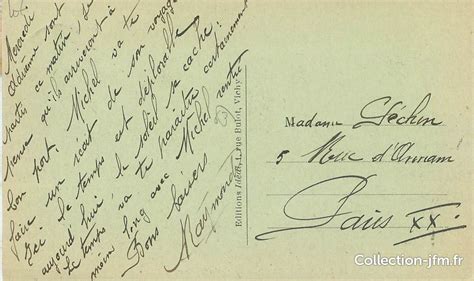 Mercredi
Adrienne sont
partis ce matin, je
pense qu'ils arriveront à
bon port. Michel va te
faire un récit de son voyage
Ici le temps est déplorable
aujourd'hui, le soleil se cache.
Le temps va te paraître certainement
moins long avec Michel rentré
Bons baisers
Raymond
Editions rue Bulot, Vichy
Madame Géchin
5 Rue d'Annam
Paris XX
Collection-jfm.fr